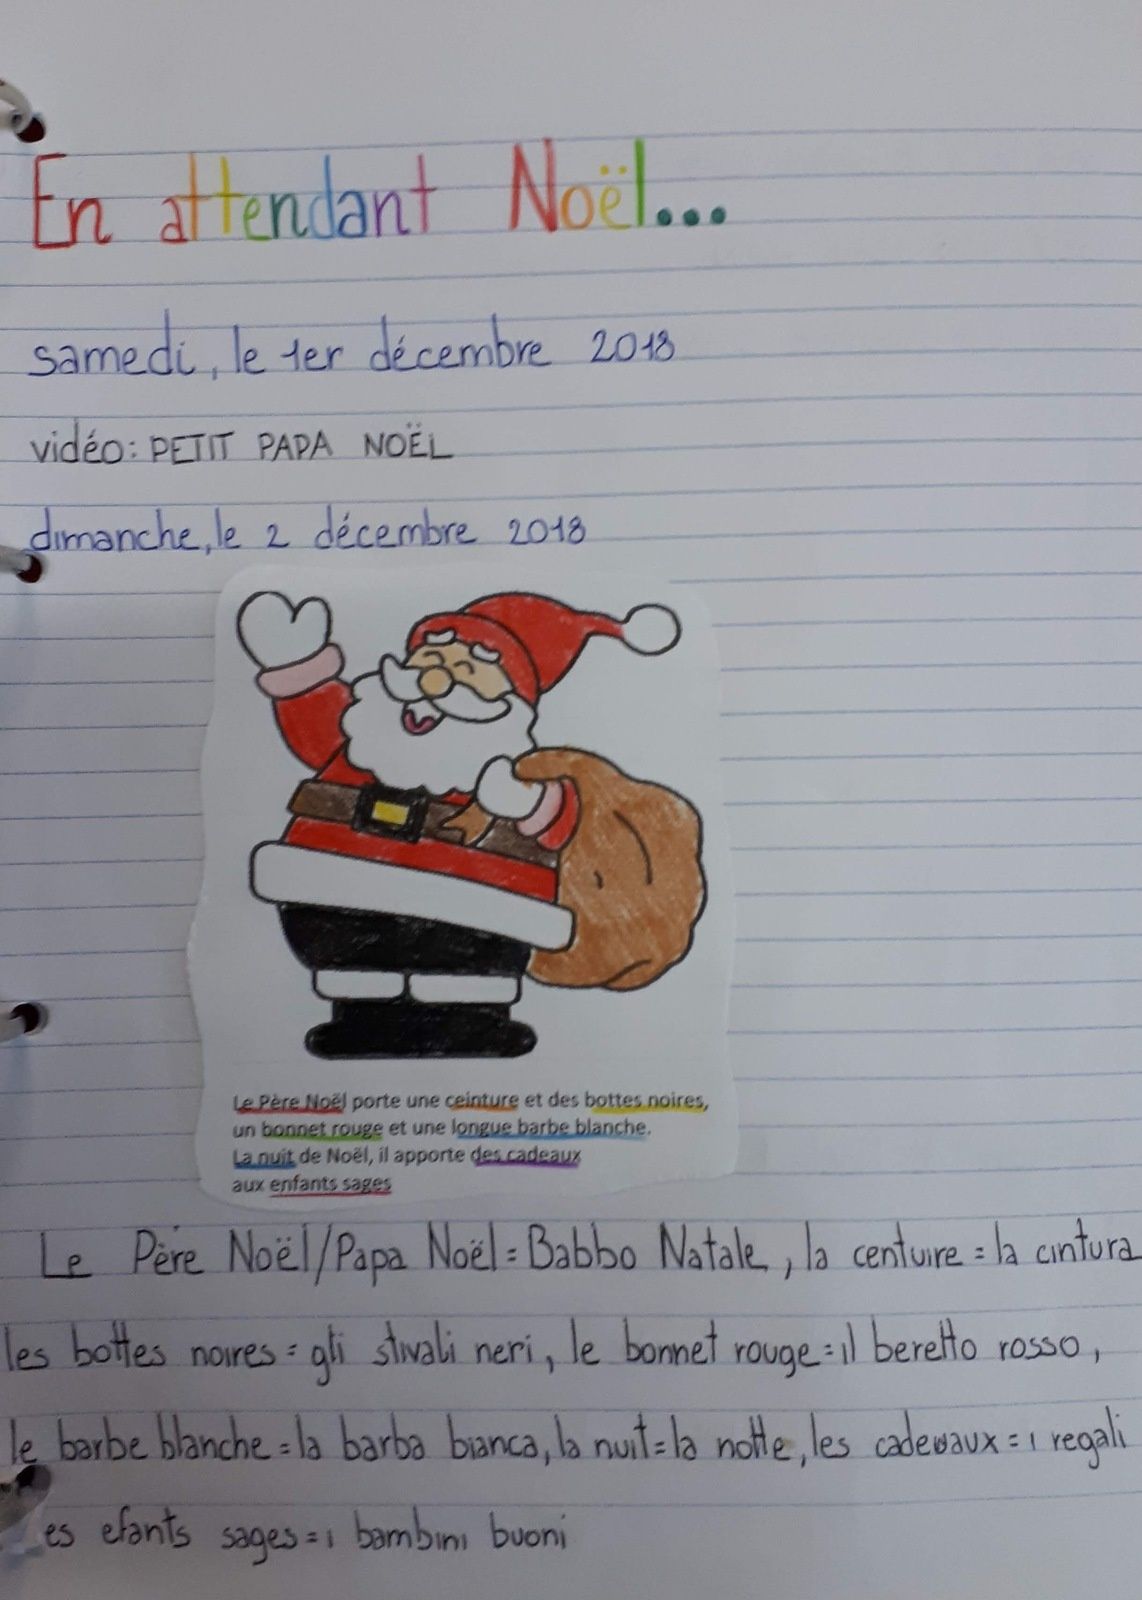 En attendant Noël...
samedi, le 1er décembre 2018
vidéo: PETIT PAPA NOËL
dimanche, le 2 décembre 2018
Le Père Noël porte une ceinture et des bottes noires,
un bonnet rouge et une longue barbe blanche.
La nuit de Noël, il apporte des cadeaux
aux enfants sages
Le Père Noël/Papa Noël = Babbo Natale, la centuire = la cintura
les bottes noires = gli stivali neri, le bonnet rouge = il beretto rosso,
le barbe blanche = la barba bianca, la nuit = la notte, les cadewaux = i regali
es efants sages = i bambini buoni